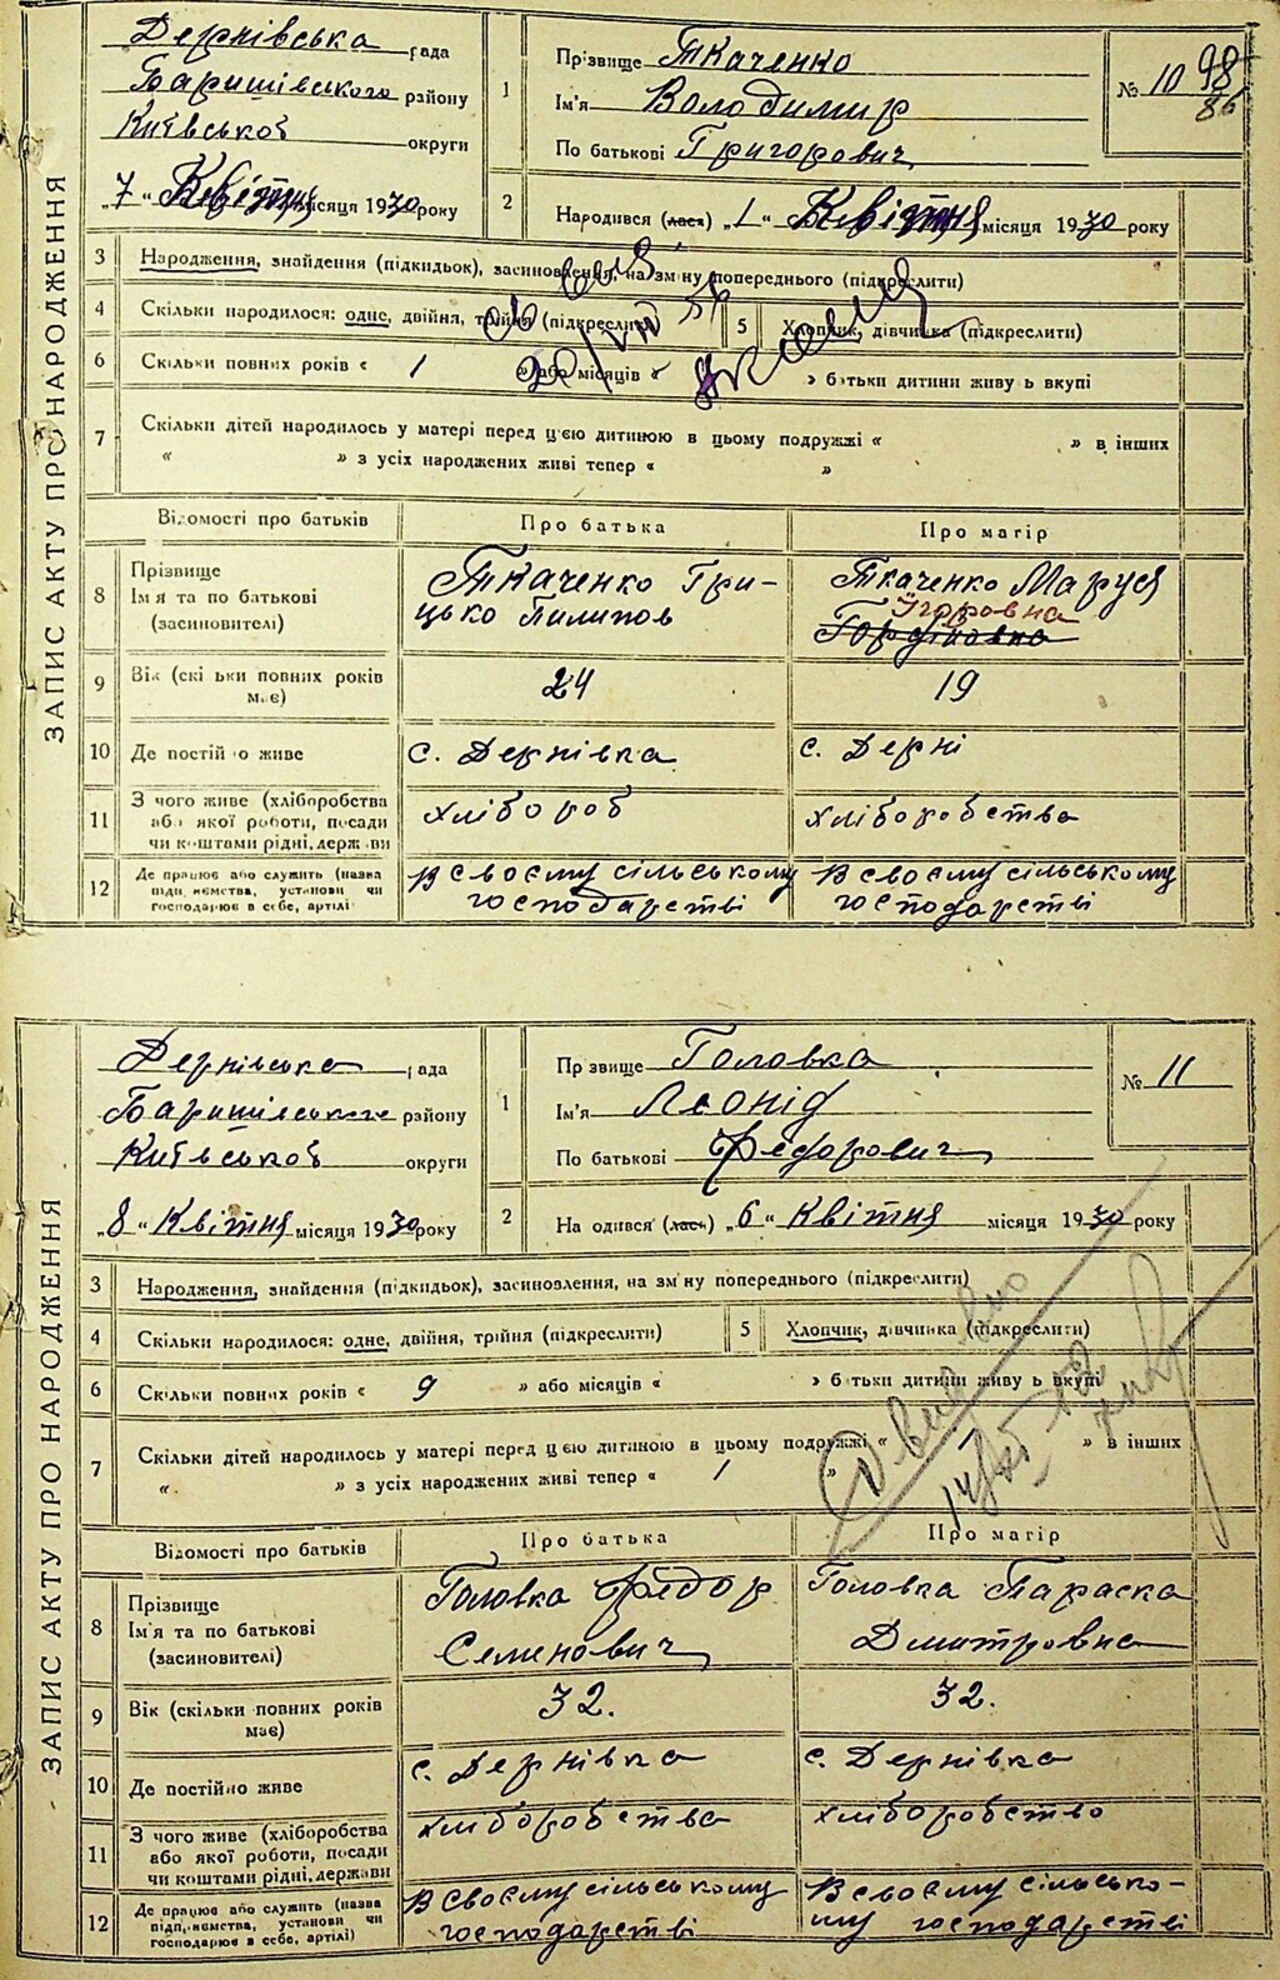 ЗАПИС АКТУ ПРО НАРОДЖЕННЯ
Дернівська рада
Баришівського району
Київської округи
„7“ Квітня місяця 1930 року
1
Прізвище Ткаченко
Ім'я Володимир
По батькові Григорович
№ 10 98
86
2 Народився (лась) „1“ Квітня місяця 1930 року
3 Народження, знайдення (підкидьок), засиновлення, на зміну попереднього (підкреслити)
4 Скільки народилося: одне, двійня, трійня (підкреслити) 5 Хлопчик, дівчинка (підкреслити)
6 Скільки повних років « 1 » або місяців « » батьки дитини живуть вкупі
7 Скільки дітей народилось у матері перед цією дитиною в цьому подружжі « » в інших
« » з усіх народжених живі тепер « »
Відомості про батьків Про батька Про матір
8 Прізвище
Ім'я та по батькові
(засиновителі)
Ткаченко Гри-
цько Пилипов
Ткаченко Маруся
Ігоровна
Гордіновна
9 Вік (скільки повних років
має) 24 19
10 Де постійно живе с. Дернівка с. Дерні
11 З чого живе (хліборобства
або якої роботи, посади
чи коштами рідні, держави
хлібороб хліборобства
12 Де працює або служить (назва
підприємства, установи чи
господарює в себе, артілі
В своєму сільському
господарстві
В своєму сільському
господарстві
ЗАПИС АКТУ ПРО НАРОДЖЕННЯ
Дернівська рада
Баришівського району
Київської округи
„8“ Квітня місяця 1930 року
1
Прізвище Головка
Ім'я Леонід
По батькові Федорович
№ 11
2 Народився (лась) „6“ Квітня місяця 1930 року
3 Народження, знайдення (підкидьок), засиновлення, на зміну попереднього (підкреслити)
4 Скільки народилося: одне, двійня, трійня (підкреслити) 5 Хлопчик, дівчинка (підкреслити)
6 Скільки повних років « 9 » або місяців « » батьки дитини живуть вкупі
7 Скільки дітей народилось у матері перед цією дитиною в цьому подружжі « 1 » в інших
« » з усіх народжених живі тепер « 1 »
Відомості про батьків Про батька Про матір
8 Прізвище
Ім'я та по батькові
(засиновителі)
Головка Федор
Семенович
Головка Параска
Дмитровна
9 Вік (скільки повних років
має) 32. 32.
10 Де постійно живе с. Дернівка с. Дернівка
11 З чого живе (хліборобства
або якої роботи, посади
чи коштами рідні, держави
хліборобства хліборобство
12 Де працює або служить (назва
підприємства, установи чи
господарює в себе, артілі)
В своєму сільському
господарстві
В своєму сілсько-
му господарстві